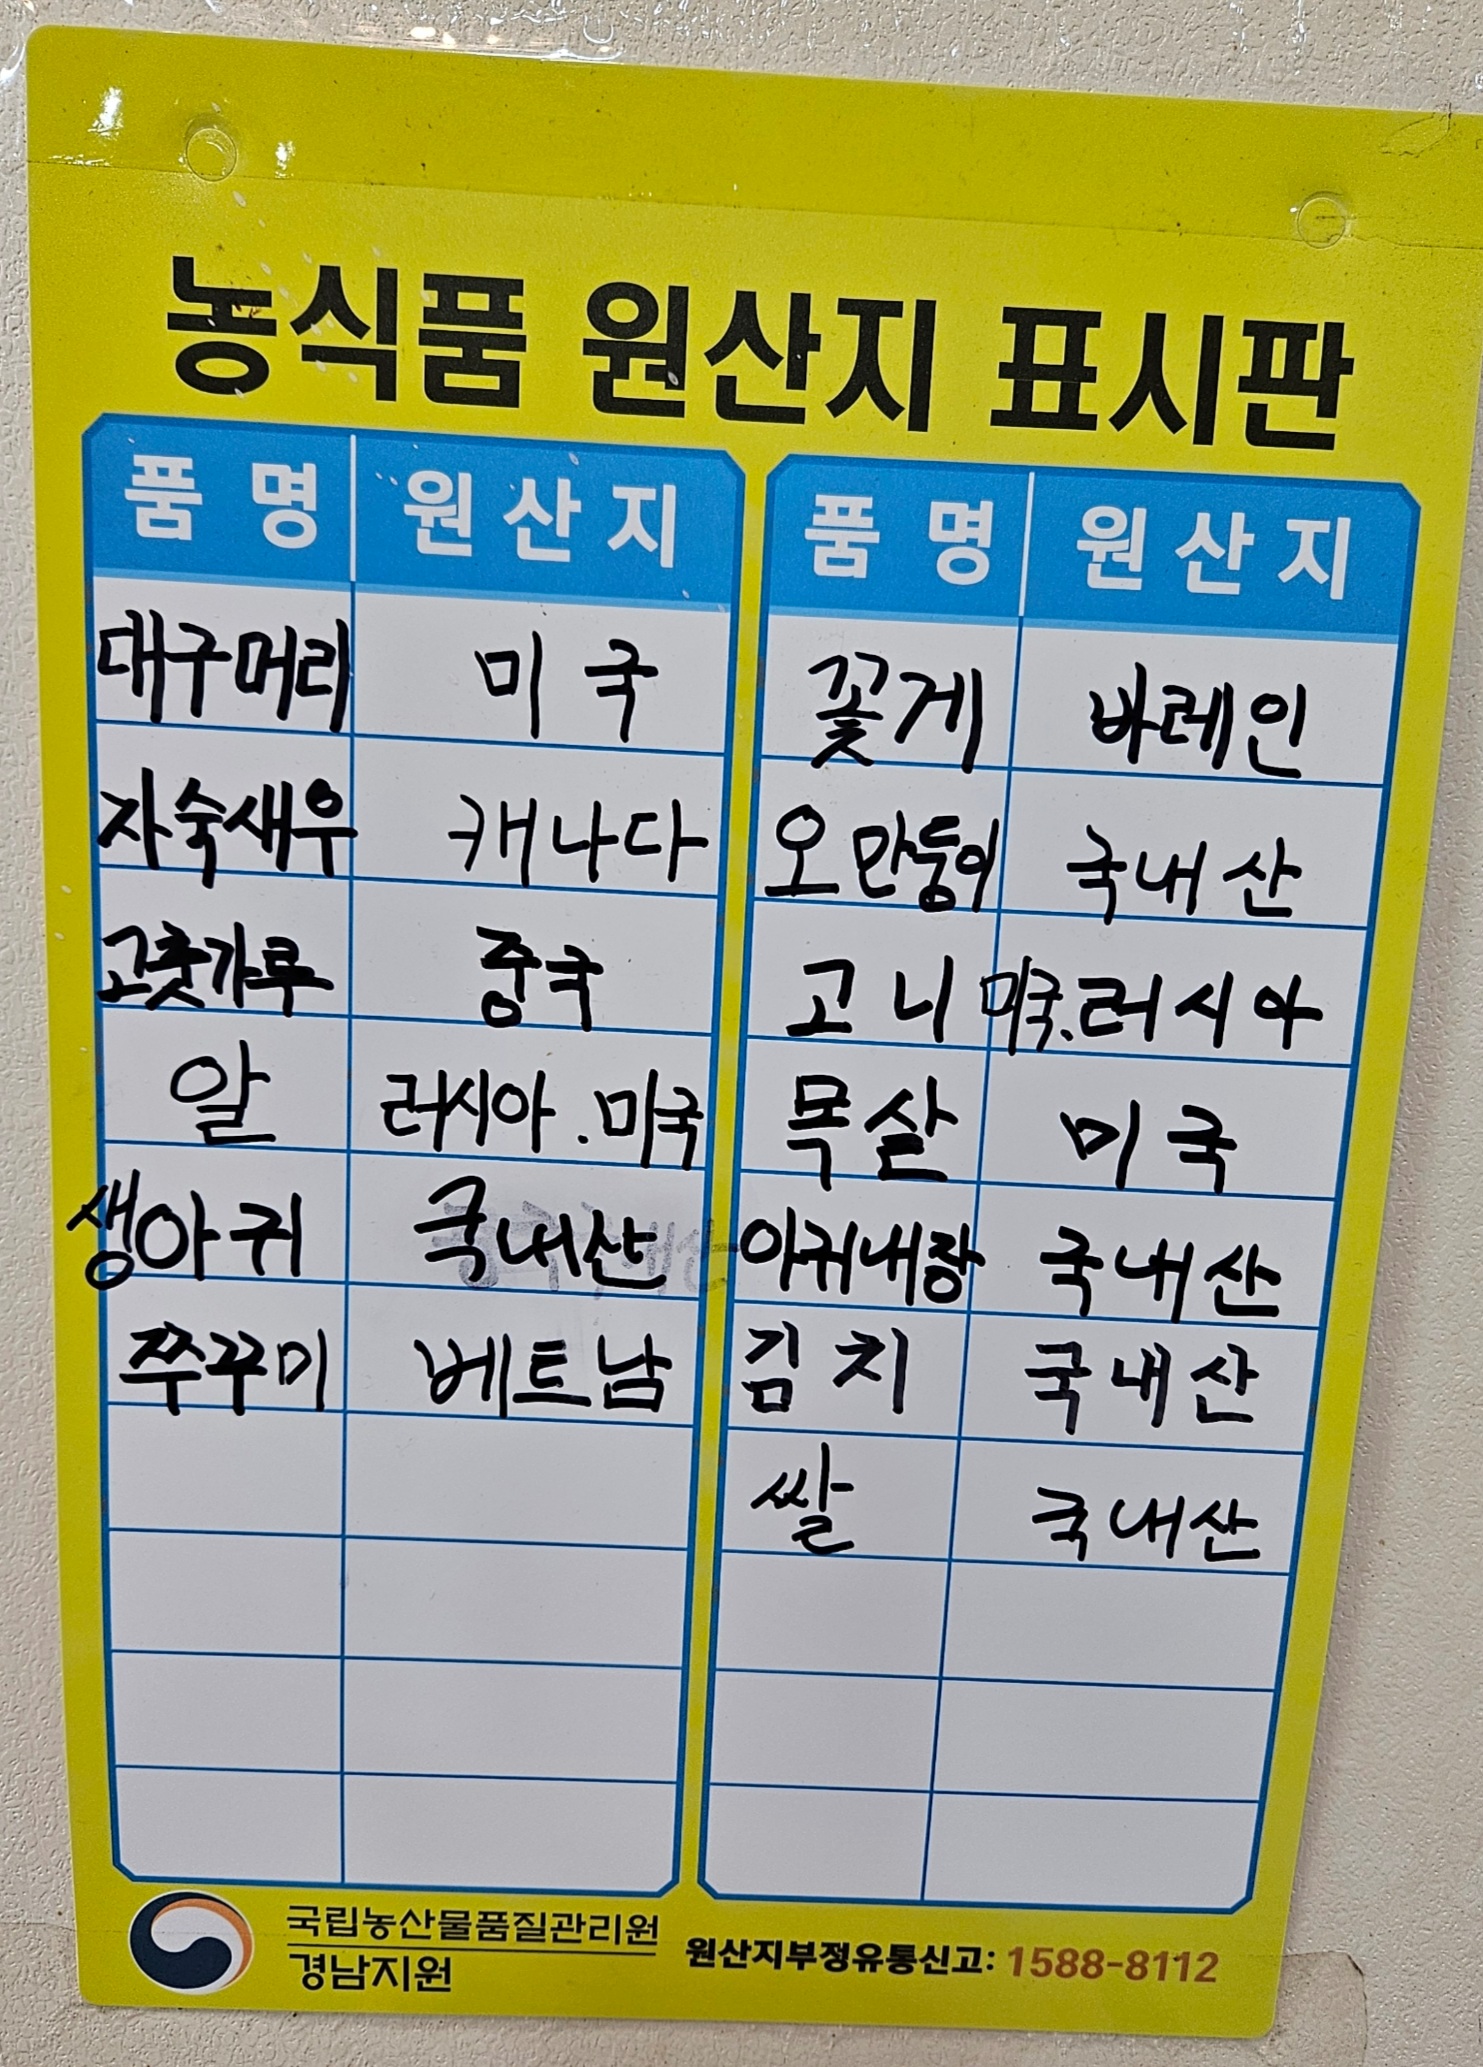 농식품 원산지 표시판
품명 원산지 품명 원산지
대구머리 미국 꽃게 바레인
자숙새우 캐나다 오만둥이 국내산
고춧가루 중국 고니 미국.러시아
알 러시아.미국 목살 미국
생아귀 국내산 아귀내장 국내산
쭈꾸미 베트남 김치 국내산
쌀 국내산
국립농산물품질관리원
경남지원
원산지부정유통신고: 1588-8112